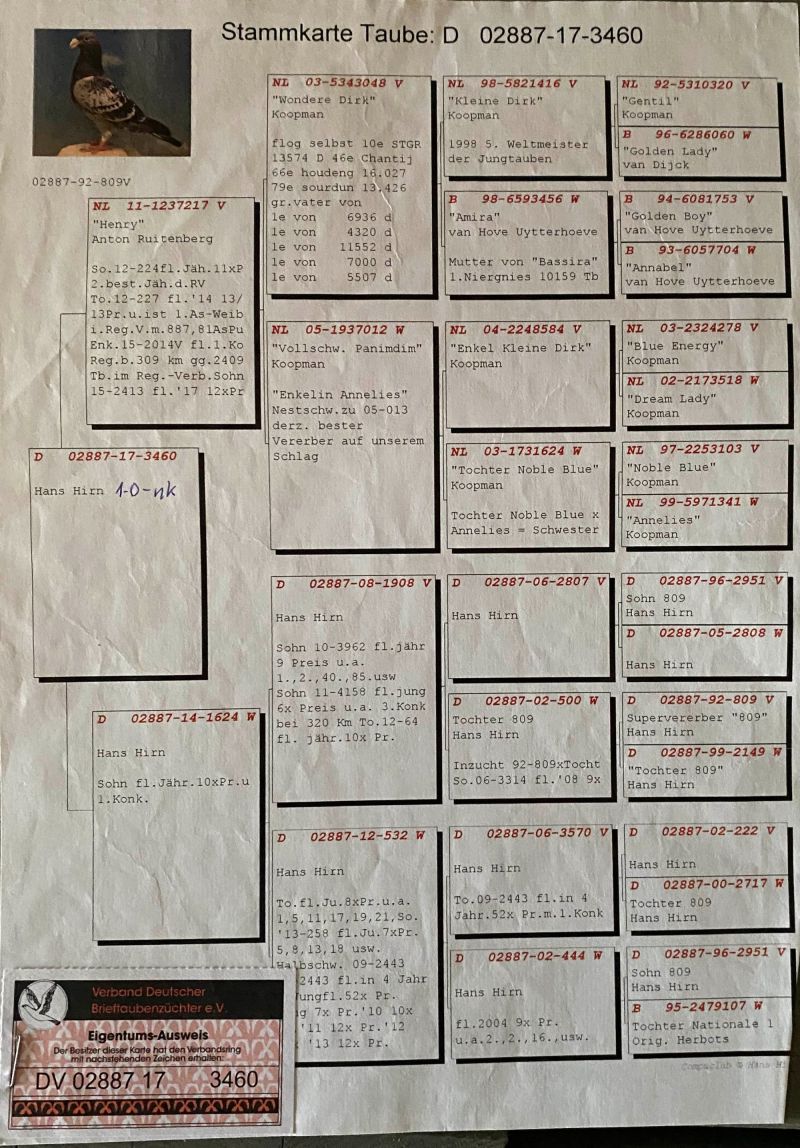 Stammkarte Taube: D 02887-17-3460
02887-92-809V
NL 11-1237217 V
"Henry"
Anton Ruitenberg
So.12-224fl.Jäh.11xP
2.best.Jäh.d.RV
To.12-227 fl.'14 13/
13Pr.u.ist 1.As-Weib
i.Reg.V.m.887,81AsPu
Enk.15-2014V fl.1.Ko
Reg.b.309 km gg.2409
Tb.im Reg.-Verb.Sohn
15-2413 fl.'17 12xPr
D 02887-17-3460
Hans Hirn 1-0-nk
D 02887-14-1624 W
Hans Hirn
Sohn fl.Jähr.10xPr.u
1.Konk.
NL 03-5343048 V
"Wondere Dirk"
Koopman
flog selbst 10e STGR
13574 D 46e Chantij
66e houdeng 16.027
79e sourdun 13.426
gr.vater von
1e von 6936 d
1e von 4320 d
1e von 11552 d
1e von 7000 d
1e von 5507 d
NL 05-1937012 W
"Vollschw. Panimdim"
Koopman
"Enkelin Annelies"
Nestschw.zu 05-013
derz. bester
Vererber auf unserem
Schlag
D 02887-08-1908 V
Hans Hirn
Sohn 10-3962 fl.jähr
9 Preis u.a.
1.,2.,40.,85.usw
Sohn 11-4158 fl.jung
6x Preis u.a. 3.Konk
bei 320 Km To.12-64
fl. jähr.10x Pr.
D 02887-12-532 W
Hans Hirn
To.fl.Ju.8xPr.u.a.
1,5,11,17,19,21,So.
'13-258 fl.Ju.7xPr.
5,8,13,18 usw.
Halbschw. 09-2443
2443 fl.in 4 Jahr
ungfl.52x Pr.
g 7x Pr.'10 10x
'11 12x Pr.'12
'13 12x Pr.
NL 98-5821416 V
"Kleine Dirk"
Koopman
1998 5. Weltmeister
der Jungtauben
B 98-6593456 W
"Amira"
van Hove Uytterhoeve
Mutter von "Bassira"
1.Niergnies 10159 Tb
NL 04-2248584 V
"Enkel Kleine Dirk"
Koopman
NL 03-1731624 W
"Tochter Noble Blue"
Koopman
Tochter Noble Blue x
Annelies = Schwester
D 02887-06-2807 V
Hans Hirn
D 02887-02-500 W
Tochter 809
Hans Hirn
Inzucht 92-809xTocht
So.06-3314 fl.'08 9x
D 02887-06-3570 V
Hans Hirn
To.09-2443 fl.in 4
Jahr.52x Pr.m.1.Konk
D 02887-02-444 W
Hans Hirn
fl.2004 9x Pr.
u.a.2.,2.,16.,usw.
NL 92-5310320 V
"Gentil"
Koopman
B 96-6286060 W
"Golden Lady"
van Dijck
B 94-6081753 V
"Golden Boy"
van Hove Uytterhoeve
B 93-6057704 W
"Annabel"
van Hove Uytterhoeve
NL 03-2324278 V
"Blue Energy"
Koopman
NL 02-2173518 W
"Dream Lady"
Koopman
NL 97-2253103 V
"Noble Blue"
Koopman
NL 99-5971341 W
"Annelies"
Koopman
D 02887-96-2951 V
Sohn 809
Hans Hirn
D 02887-05-2808 W
Hans Hirn
D 02887-92-809 V
Supervererber "809"
Hans Hirn
D 02887-99-2149 W
"Tochter 809"
Hans Hirn
D 02887-02-222 V
Hans Hirn
D 02887-00-2717 W
Tochter 809
Hans Hirn
D 02887-96-2951 V
Sohn 809
Hans Hirn
B 95-2479107 W
Tochter Nationale 1
Orig. Herbots
Compuclub © Hans Hi
Verband Deutscher
Brieftaubenzüchter e.V.
Eigentums-Ausweis
Der Besitzer dieser Karte hat den Verbandsring
mit nachstehenden Zeichen erhalten:
DV 02887 17 3460